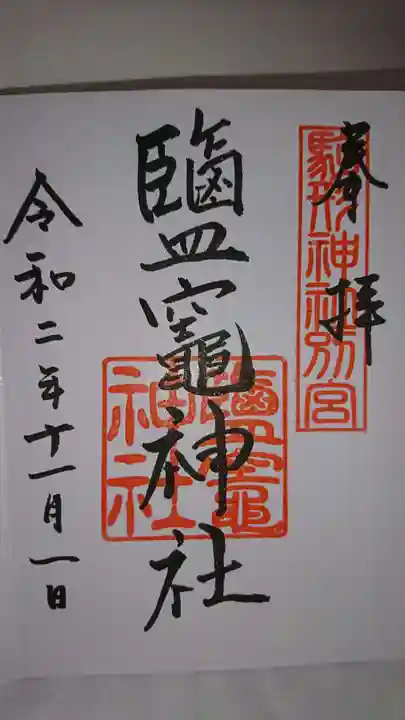 奉拝
駒形神社別宮
鹽竈神社
鹽竈
神社
令和二年十一月一日